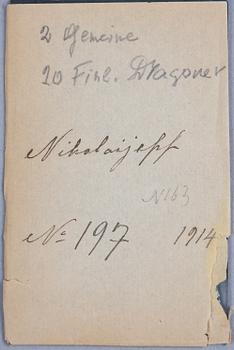 2 Gemeine
20 Finl. Dragoner
Nikolaijeff
N163
No 197 1914